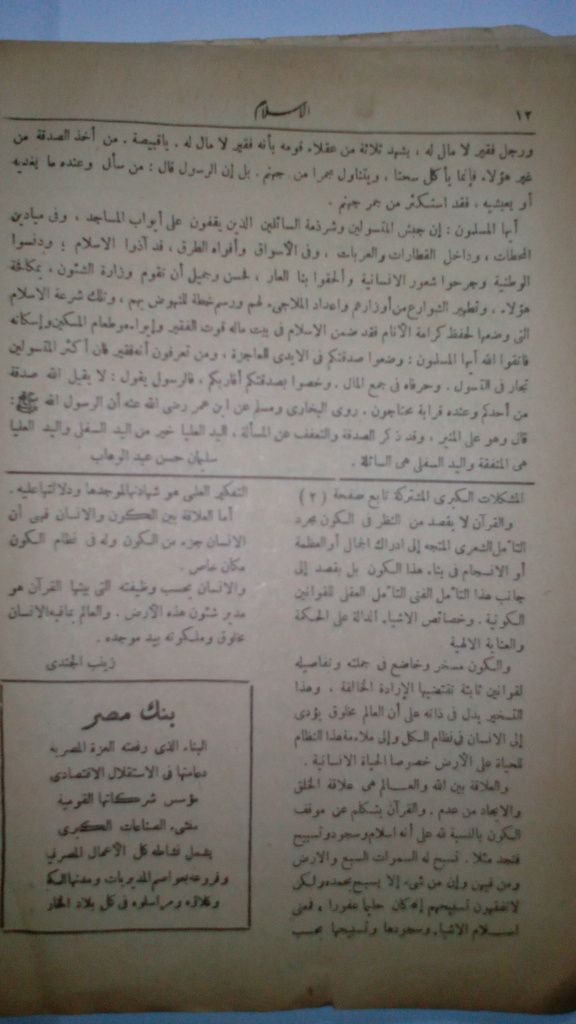 ١٢
الاسلام
ورجل فقير لا مال له ، يشهد ثلاثة من عقلاء قومه بأنه فقير لا مال له . ياقبيصة . من أخذ الصدقة من
غير هؤلاء فإنما يأكل سحتا ، ويتناول جمرا من جهنم . بل إن الرسول قال : من سأل وعنده ما يغديه
أو يعيشيه ، فقد استكثر من جمر جهنم .
أيها المسلمون : إن جيش المتسولين وشرذمة السائلين الذين يقفون على أبواب المساجد ، وفى ميادين
المحطات ، وداخل القطارات والعربات ، وفى الأسواق وأفواه الطرق ، قد آذوا الاسلام ، ودنسوا
الوطنية وجرحوا شعور الانسانية وألحقوا بنا العار ، فحسن وجميل أن تقوم وزارة الشئون ، بمكافحة
هؤلاء . وتطهير الشوارع من أوزارهم واعداد الملاجىء لهم ورسم خطة للنهوض بهم ، وتلك شرعة الاسلام
التى وضعها لحفظ كرامة الأنام فقد ضمن الاسلام فى بيت ماله قوت الفقير وإيواءه وطعام المسكين وإسكانه
فاتقوا الله أيها المسلمون : وضعوا صدقتكم فى الايدى العاجزة ، ومن تعرفون أنه فقير فان أكثر المتسولين
تجار فى التسول . وحرفاء فى جمع المال . وخصوا بصدقتكم أقاربكم ، فالرسول يقول : لا يقبل الله صدقة
من أحدكم وعنده قرابة محتاجون . روى البخارى ومسلم عن ابن عمر رضى الله عنه أن الرسول الله ﷺ :
قال وهو على المنبر ، وقد ذكر الصدقة والتعفف عن المسألة . اليد العليا خير من اليد السفلى واليد العليا
هى المنفقة واليد السفلى هى السائلة .
سليمان حسن عبد الوهاب
المشكلات الكبرى المشتركة تابع صفحة ( ٢ )
والقرآن لا يقصد من النظر فى الكون مجرد
التأمل الشعرى المتجه إلى ادراك الجمال أو العظمة
أو الانسجام فى بناء هذا الكون بل يقصد إلى
جانب هذا التأمل الفنى التأمل العقلى للقوانين
الكونية . وخصائص الاشياء الدالة على الحكمة
والعناية الالهية
والكون مسخر وخاضع فى جملته وتفاصيله
لقوانين ثابتة تقتضيها الإرادة الخالقة . وهذا
التسخير يدل فى ذاته على أن العالم مخلوق يؤدى
إلى الانسان فى نظام الكل وإلى ملاءمة هذا النظام
للحياة على الأرض خصوصا الحياة الانسانية .
والعلاقة بين الله والعالم هى علاقة الخلق
والايجاد من عدم . والقرآن يتكلم عن موقف
الكون بالنسبة لله على أنه اسلام وسجود وتسبيح
فنجد مثلا . تسبح له السموات السبع والارض
ومن فيهن وإن من شىء إلا يسبح بحمده ولكن
لا تفقهون تسبيحهم إنه كان حليما غفورا ، فمعنى
اسلام الاشياء وسجودها وتسبيحها بحسب
التفكير العلمى هو شهادتها لموجدها ودلالتها عليه .
أما العلاقة بين الكون والانسان فهى أن
الانسان جزء من الكون وله فى نظام الكون
مكان خاص .
والانسان بحسب وظيفته التى بينها القرآن هو
مدير شئون هذه الأرض . والعالم بما فيه الانسان
مخلوق وملكوته بيد موجده .
زينب الجندى
بنك مصر
البناء الذى رفعته العزة المصرية
دعامتها فى الاستقلال الاقتصادى
مؤسس شركاتها القومية
منشىء الصناعات الكبرى
يشمل نشاطه كل الأعمال المصرفي
وفروعه بعواصم المديريات ومدنها الك
وكلاؤه ومراسلوه فى كل بلاد الخار